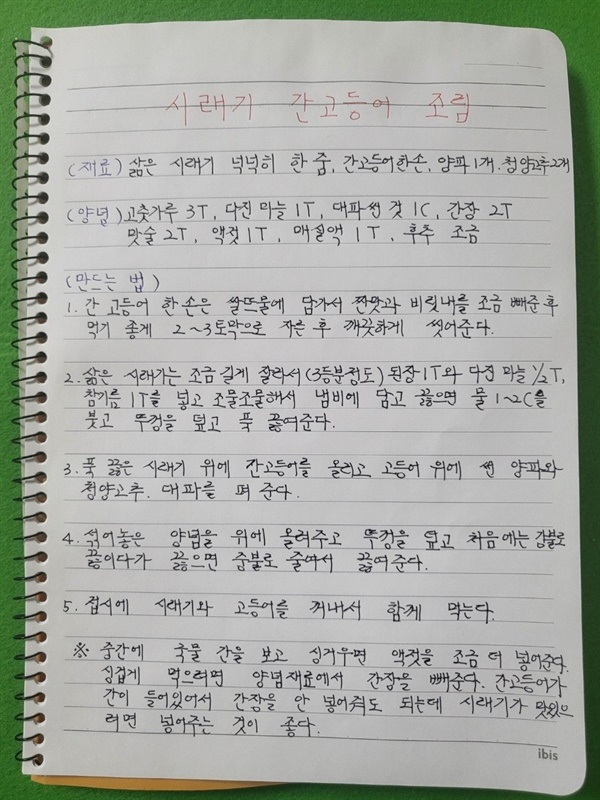 시래기 간고등어 조림
(재료) 삶은 시래기 넉넉히 한 줌, 간고등어한손, 양파1개. 청양고추2개
(양념) 고춧가루 3T, 다진 마늘 1T, 대파썬 것 1C, 간장 2T
맛술 2T, 액젓 1T, 매실액 1T, 후추 조금
(만드는 법)
1. 간 고등어 한손은 쌀뜨물에 담가서 짠맛과 비릿내를 조금 빼준 후
먹기 좋게 2~3토막으로 자른 후 깨끗하게 씻어준다.
2. 삶은 시래기는 조금 길게 잘라서(3등분정도) 된장 1T와 다진 마늘 1/2T,
참기름 1T를 넣고 조물조물해서 냄비에 담고 끓으면 물 1~2C를
붓고 뚜껑을 덮고 푹 끓여준다.
3. 푹 끓은 시래기 위에 간고등어를 올리고 고등어 위에 썬 양파와
청양고추. 대파를 펴 준다.
4. 섞어놓은 양념을 위에 올려주고 뚜껑을 덮고 처음에는 강불로
끓이다가 끓으면 중불로 줄여서 끓여준다.
5. 접시에 시래기와 고등어를 꺼내서 함께 먹는다.
※ 중간에 국물 간을 보고 싱거우면 액젓을 조금 더 넣어준다.
싱겁게 먹으려면 양념재료에서 간장을 빼준다. 간고등어가
간이 들어있어서 간장을 안 넣어줘도 되는데 시래기가 맛있으
려면 넣어주는 것이 좋다.
ibis